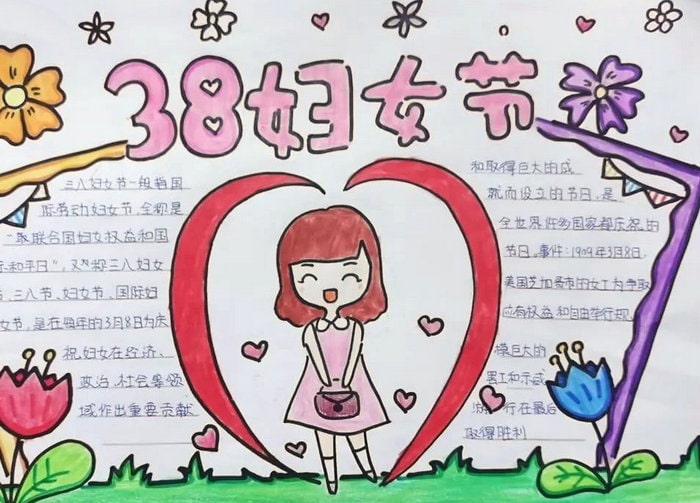 38妇女节
三八妇女节一般指国
际劳动妇女节,全称是
"联合国妇女权益和国
际和平日",又称三八妇女
节、三八节、妇女节、国际妇
女节,是在每年的3月8日为庆
祝妇女在经济、
政治、社会等领
域作出重要贡献
和取得巨大的成
就而设立的节日,是
全世界许多国家都庆祝的
节日。事件:1909年3月8日,
美国芝加哥市的女工为争取
应有权益和自由举行规
模巨大的
罢工和示威
游行在最后
取得胜利